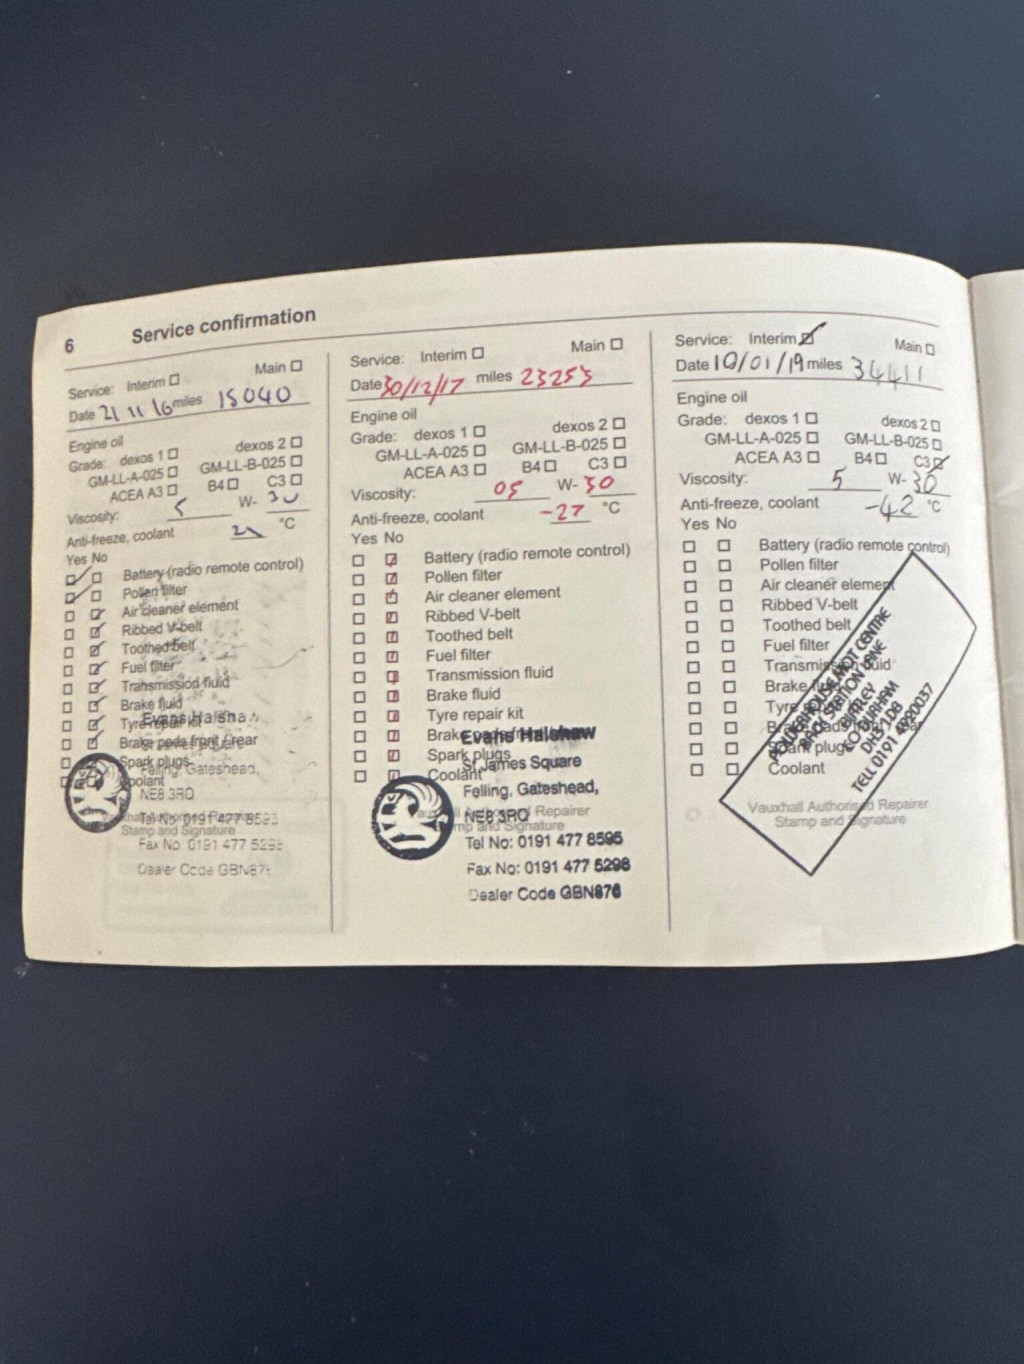 6 Service confirmation
Service: Interim Main
Date 21 11 16 miles 15040
Engine oil
Grade: dexos 1 dexos 2
GM-LL-A-025 GM-LL-B-025
ACEA A3 B4 C3
Viscosity: 5 W- 30
Anti-freeze, coolant °C
Yes No
Battery (radio remote control)
Pollen filter
Air cleaner element
Ribbed V-belt
Toothed belt
Fuel filter
Transmission fluid
Brake fluid
Tyre repair kit
Brake pads front / rear
Spark plugs
Coolant
Evans Halshaw
Felling, Gateshead,
NE8 3RQ
Vauxhall Authorised Repairer
Stamp and Signature
Tel No: 0191 477 8595
Fax No: 0191 477 5298
Dealer Code
Service: Interim Main
Date 30/12/17 miles 23253
Engine oil
Grade: dexos 1 dexos 2
GM-LL-A-025 GM-LL-B-025
ACEA A3 B4 C3
Viscosity: 05 W- 30
Anti-freeze, coolant -27 °C
Yes No
Battery (radio remote control)
Pollen filter
Air cleaner element
Ribbed V-belt
Toothed belt
Fuel filter
Transmission fluid
Brake fluid
Tyre repair kit
Brake pads front / rear
Spark plugs
Coolant
Evans Halshaw
St James Square
Felling, Gateshead,
NE8 3RQ
Vauxhall Authorised Repairer
Stamp and Signature
Tel No: 0191 477 8595
Fax No: 0191 477 5298
Dealer Code GBN876
Service: Interim Main
Date 10/01/19 miles 34411
Engine oil
Grade: dexos 1 dexos 2
GM-LL-A-025 GM-LL-B-025
ACEA A3 B4 C3
Viscosity: 5 W- 30
Anti-freeze, coolant -42 °C
Yes No
Battery (radio remote control)
Pollen filter
Air cleaner element
Ribbed V-belt
Toothed belt
Fuel filter
Transmission fluid
Brake fluid
Tyre repair kit
Brake pads front / rear
Spark plugs
Coolant
Vauxhall Authorised Repairer
Stamp and Signature
MOT CENTRE
STATION LANE
BIRTLEY
CO DURHAM
DH3 1DB
TELL 0191 4920037